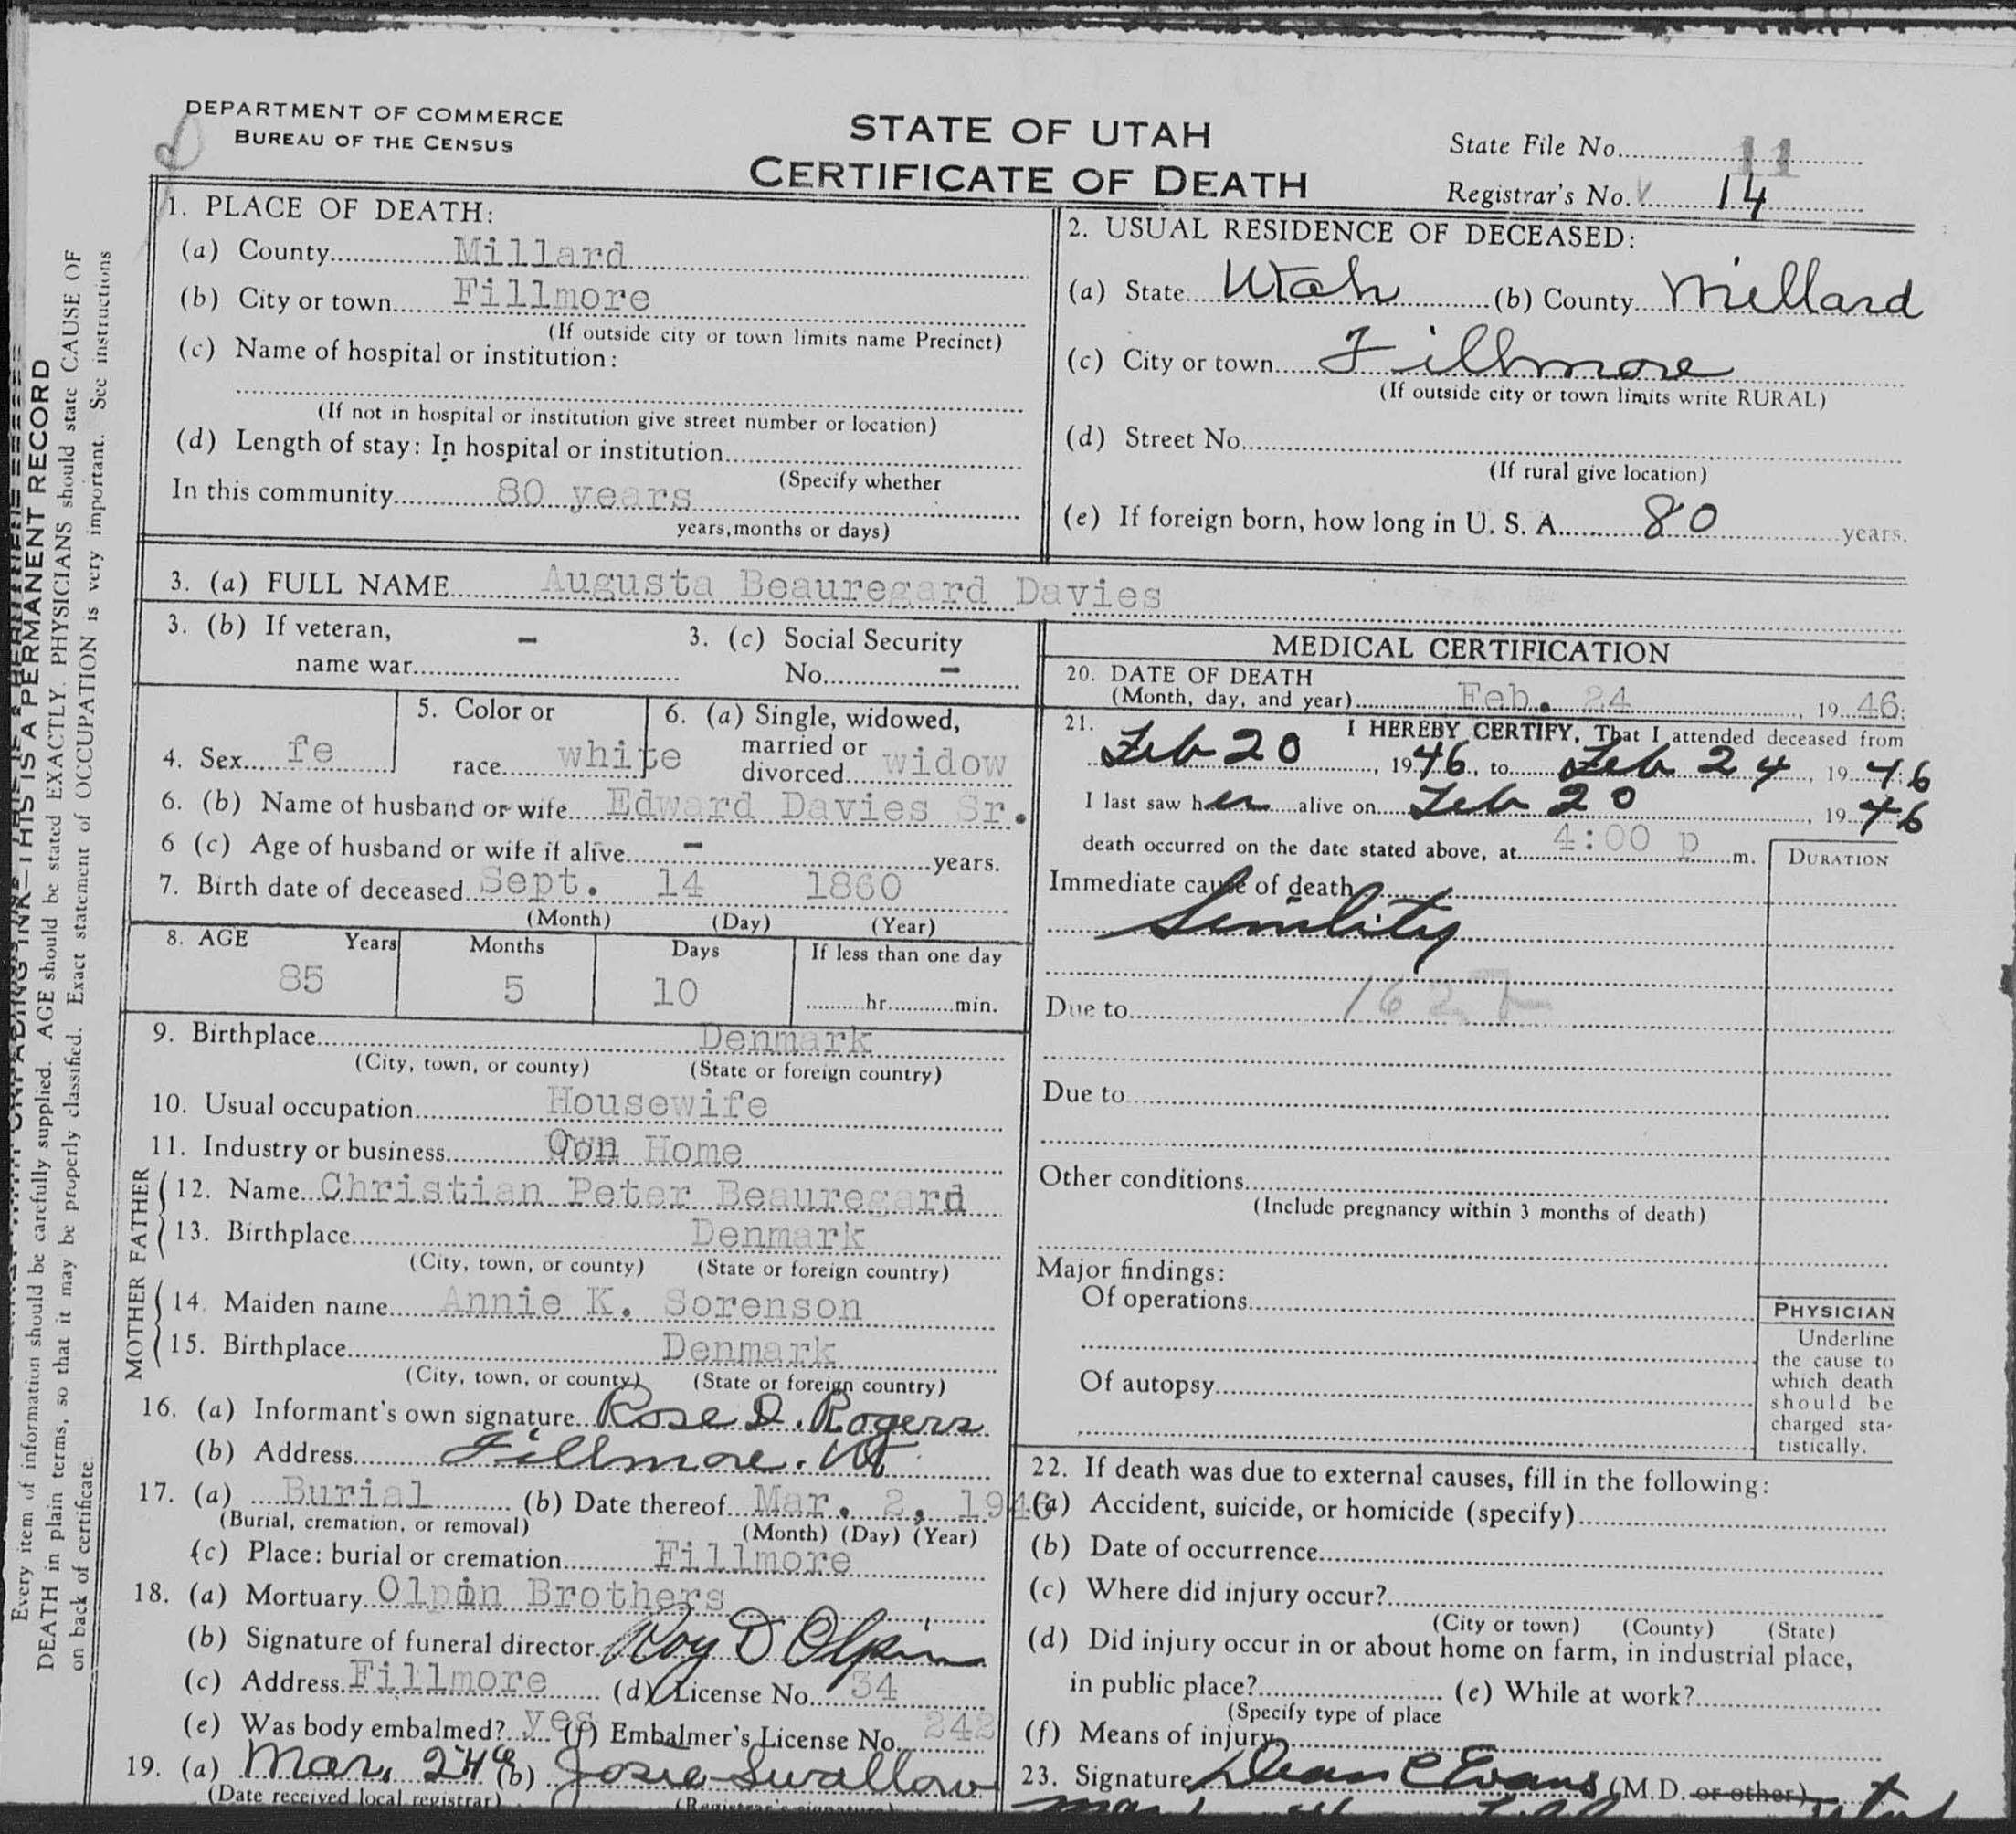 DEPARTMENT OF COMMERCE
BUREAU OF THE CENSUS
STATE OF UTAH
CERTIFICATE OF DEATH
State File No. 11
Registrar's No. 14
1. PLACE OF DEATH:
(a) County Millard
(b) City or town Fillmore
(If outside city or town limits name Precinct)
(c) Name of hospital or institution:
(If not in hospital or institution give street number or location)
(d) Length of stay: In hospital or institution
(Specify whether
In this community 80 years
years, months or days)
2. USUAL RESIDENCE OF DECEASED:
(a) State Utah (b) County Millard
(c) City or town Fillmore
(If outside city or town limits write RURAL)
(d) Street No.
(If rural give location)
(e) If foreign born, how long in U. S. A. 80 years.
3. (a) FULL NAME Augusta Beauregard Davies
3. (b) If veteran, name war -
3. (c) Social Security No. -
4. Sex fe
5. Color or race white
6. (a) Single, widowed, married or divorced widow
6. (b) Name of husband or wife Edward Davies Sr.
6 (c) Age of husband or wife if alive - years.
7. Birth date of deceased Sept. 14 1860
(Month) (Day) (Year)
8. AGE Years Months Days If less than one day
85 5 10 hr. min.
9. Birthplace Denmark
(City, town, or county) (State or foreign country)
10. Usual occupation Housewife
11. Industry or business Own Home
FATHER
12. Name Christian Peter Beauregard
13. Birthplace Denmark
(City, town, or county) (State or foreign country)
MOTHER
14. Maiden name Annie K. Sorenson
15. Birthplace Denmark
(City, town, or county) (State or foreign country)
16. (a) Informant's own signature Rose D. Rogers
(b) Address Fillmore. Ut
17. (a) Burial (b) Date thereof Mar. 2, 1946
(Burial, cremation, or removal) (Month) (Day) (Year)
(c) Place: burial or cremation Fillmore
18. (a) Mortuary Olpin Brothers
(b) Signature of funeral director Roy D Olpin
(c) Address Fillmore (d) License No. 34
(e) Was body embalmed? yes (f) Embalmer's License No. 242
19. (a) Mar. (b) Josie Swallow
(Date received local registrar) (Registrar's signature)
MEDICAL CERTIFICATION
20. DATE OF DEATH
(Month, day, and year) Feb. 24, 1946.
21. I HEREBY CERTIFY, That I attended deceased from
Feb 20, 1946, to Feb 24, 1946
I last saw her alive on Feb 20, 1946
death occurred on the date stated above, at 4:00 p m.
DURATION
Immediate cause of death
Senility
Due to 162
Due to
Other conditions
(Include pregnancy within 3 months of death)
Major findings:
Of operations
Of autopsy
PHYSICIAN
Underline
the cause to
which death
should be
charged sta-
tistically.
22. If death was due to external causes, fill in the following:
(a) Accident, suicide, or homicide (specify)
(b) Date of occurrence
(c) Where did injury occur?
(City or town) (County) (State)
(d) Did injury occur in or about home on farm, in industrial place,
in public place? (e) While at work?
(Specify type of place
(f) Means of injury
23. Signature Dean C Evans (M.D. or other)
THIS IS A PERMANENT RECORD
Every item of information should be carefully supplied. AGE should be stated EXACTLY. PHYSICIANS should state CAUSE OF
DEATH in plain terms, so that it may be properly classified. Exact statement of OCCUPATION is very important. See instructions
on back of certificate.